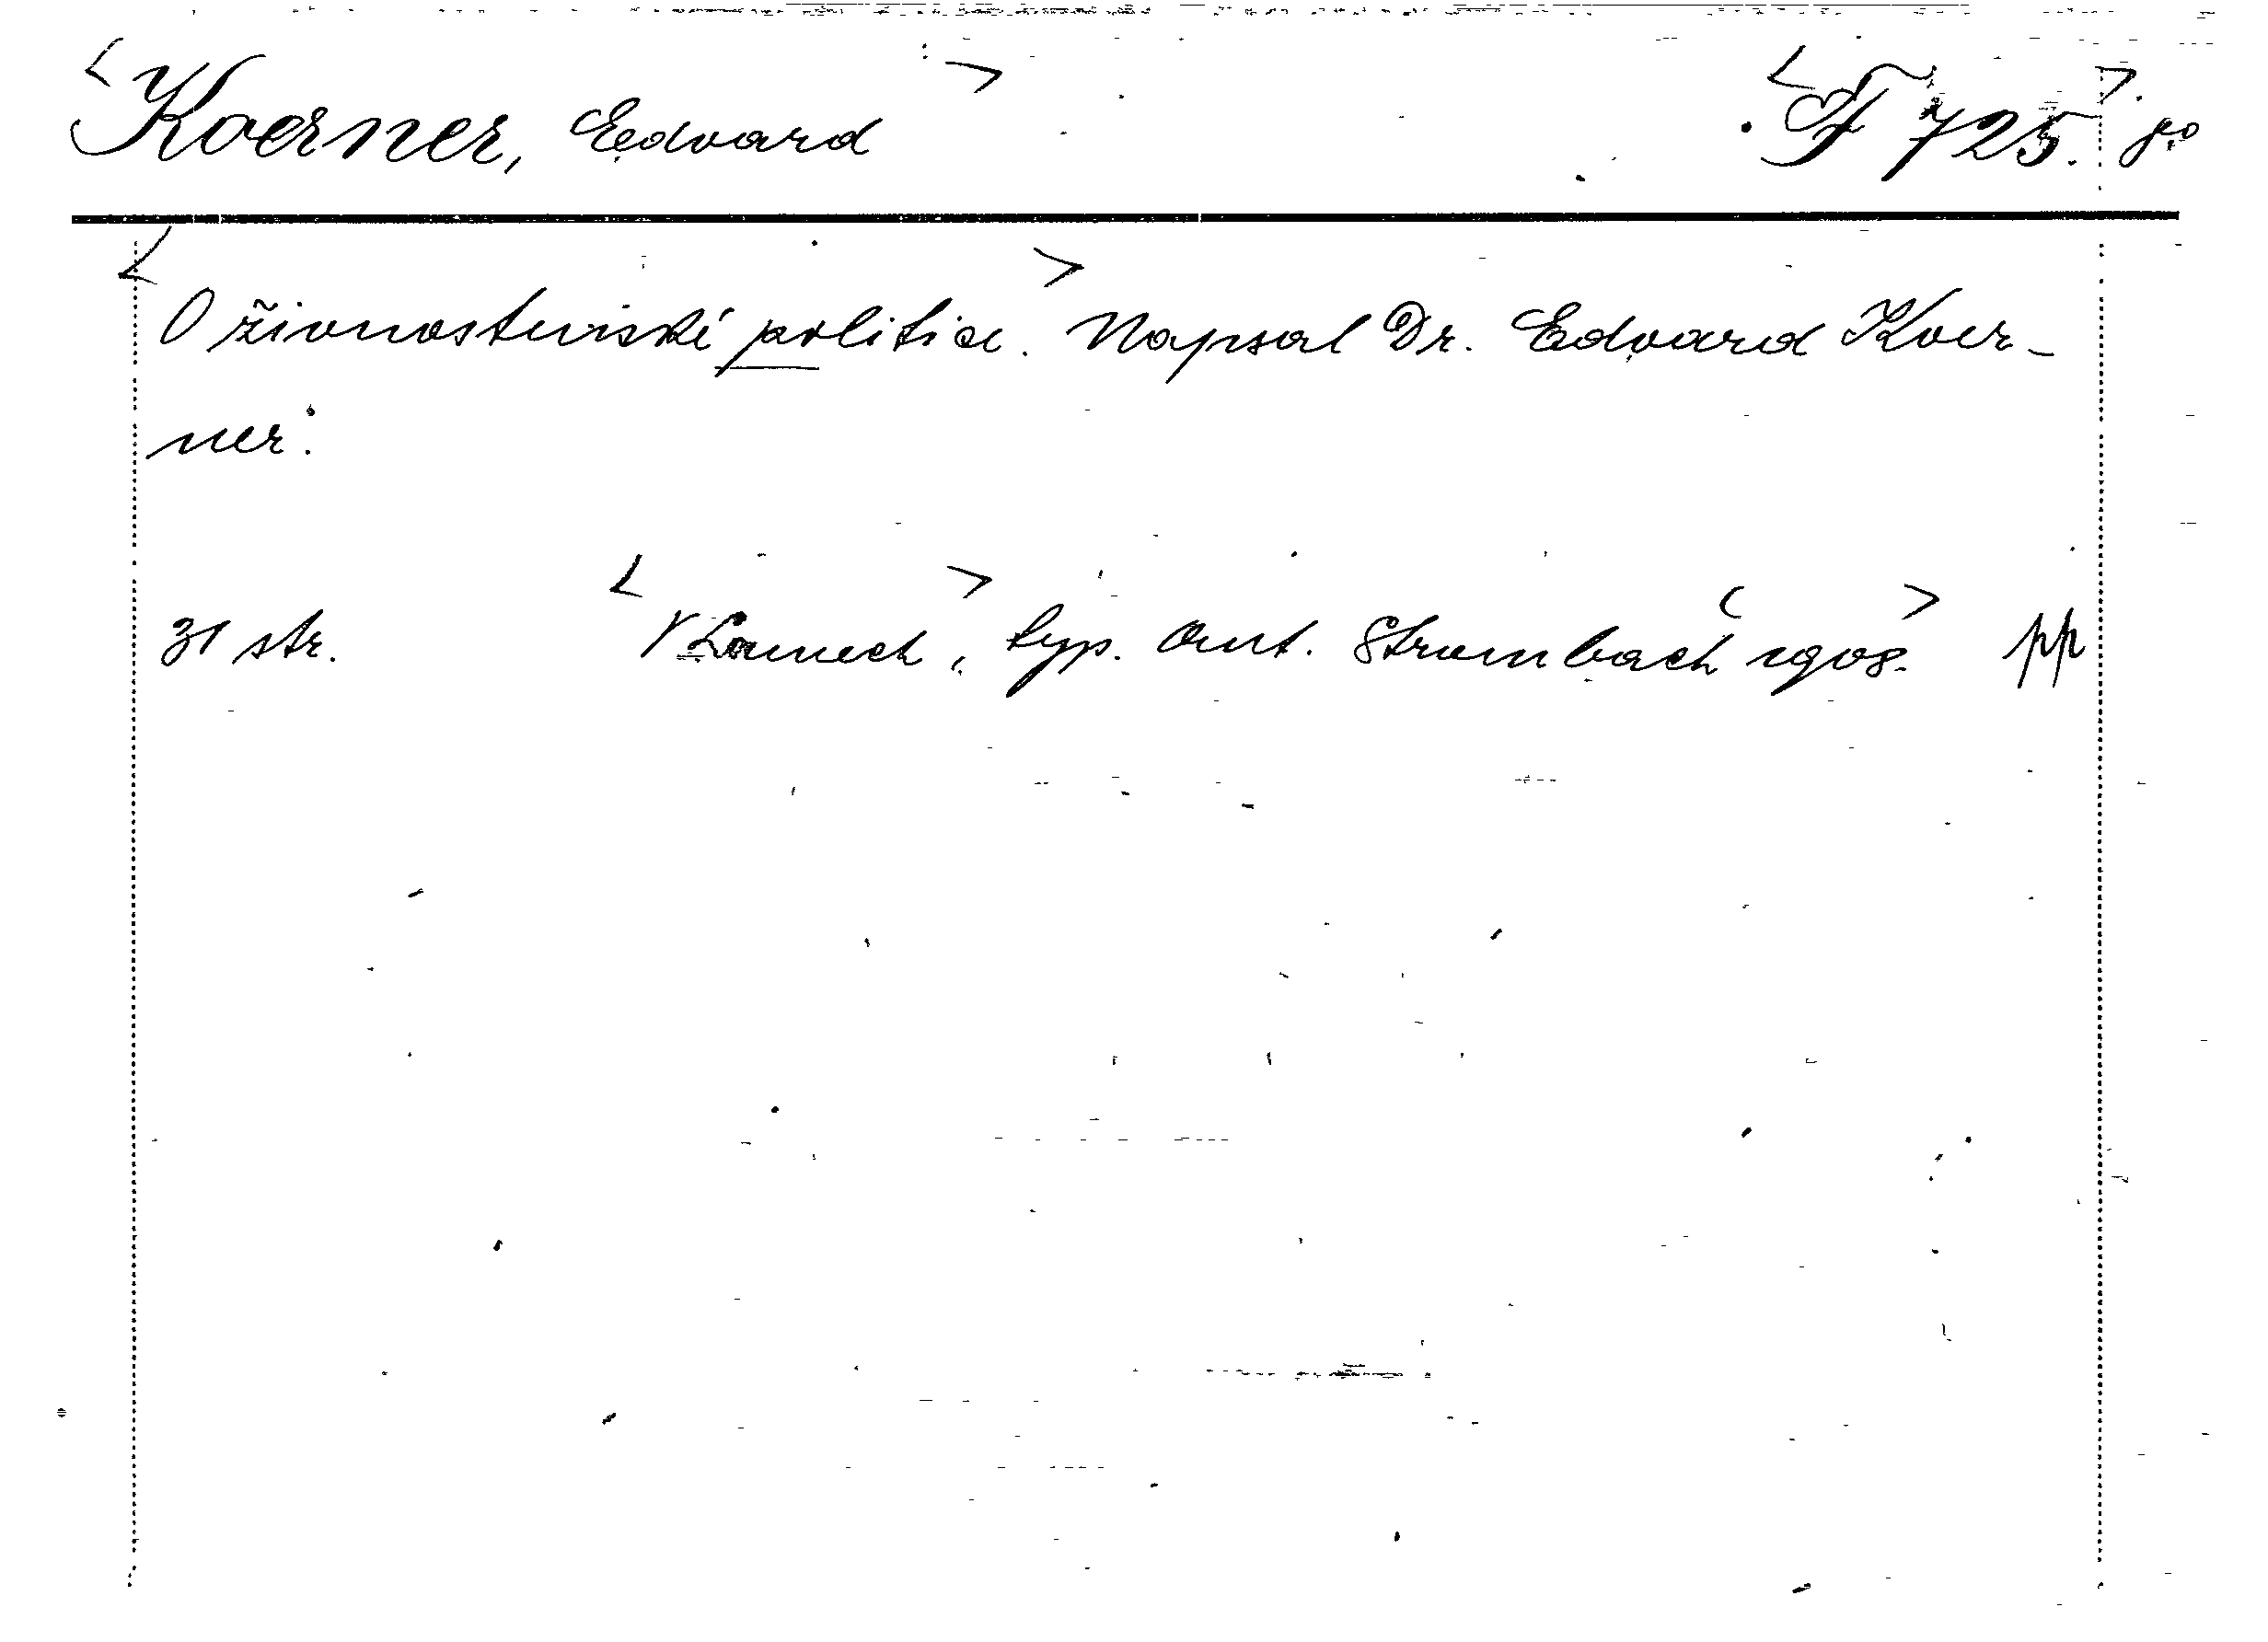 <Koerner, Edvard> <F 725.> 8°
<O živnostenské politice.> Napsal Dr. Edvard Koer-
ner.
31 str. <V Lounech>, typ. Ant. Strombach <1908.> pp